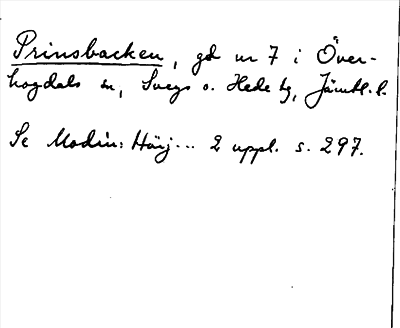 Prinsbacken, gd nr 7 i Över-
hogdals sn, Svegs o. Hede tg, Jämtl. l.
Se Modin: Härj... 2 uppl. s. 297.